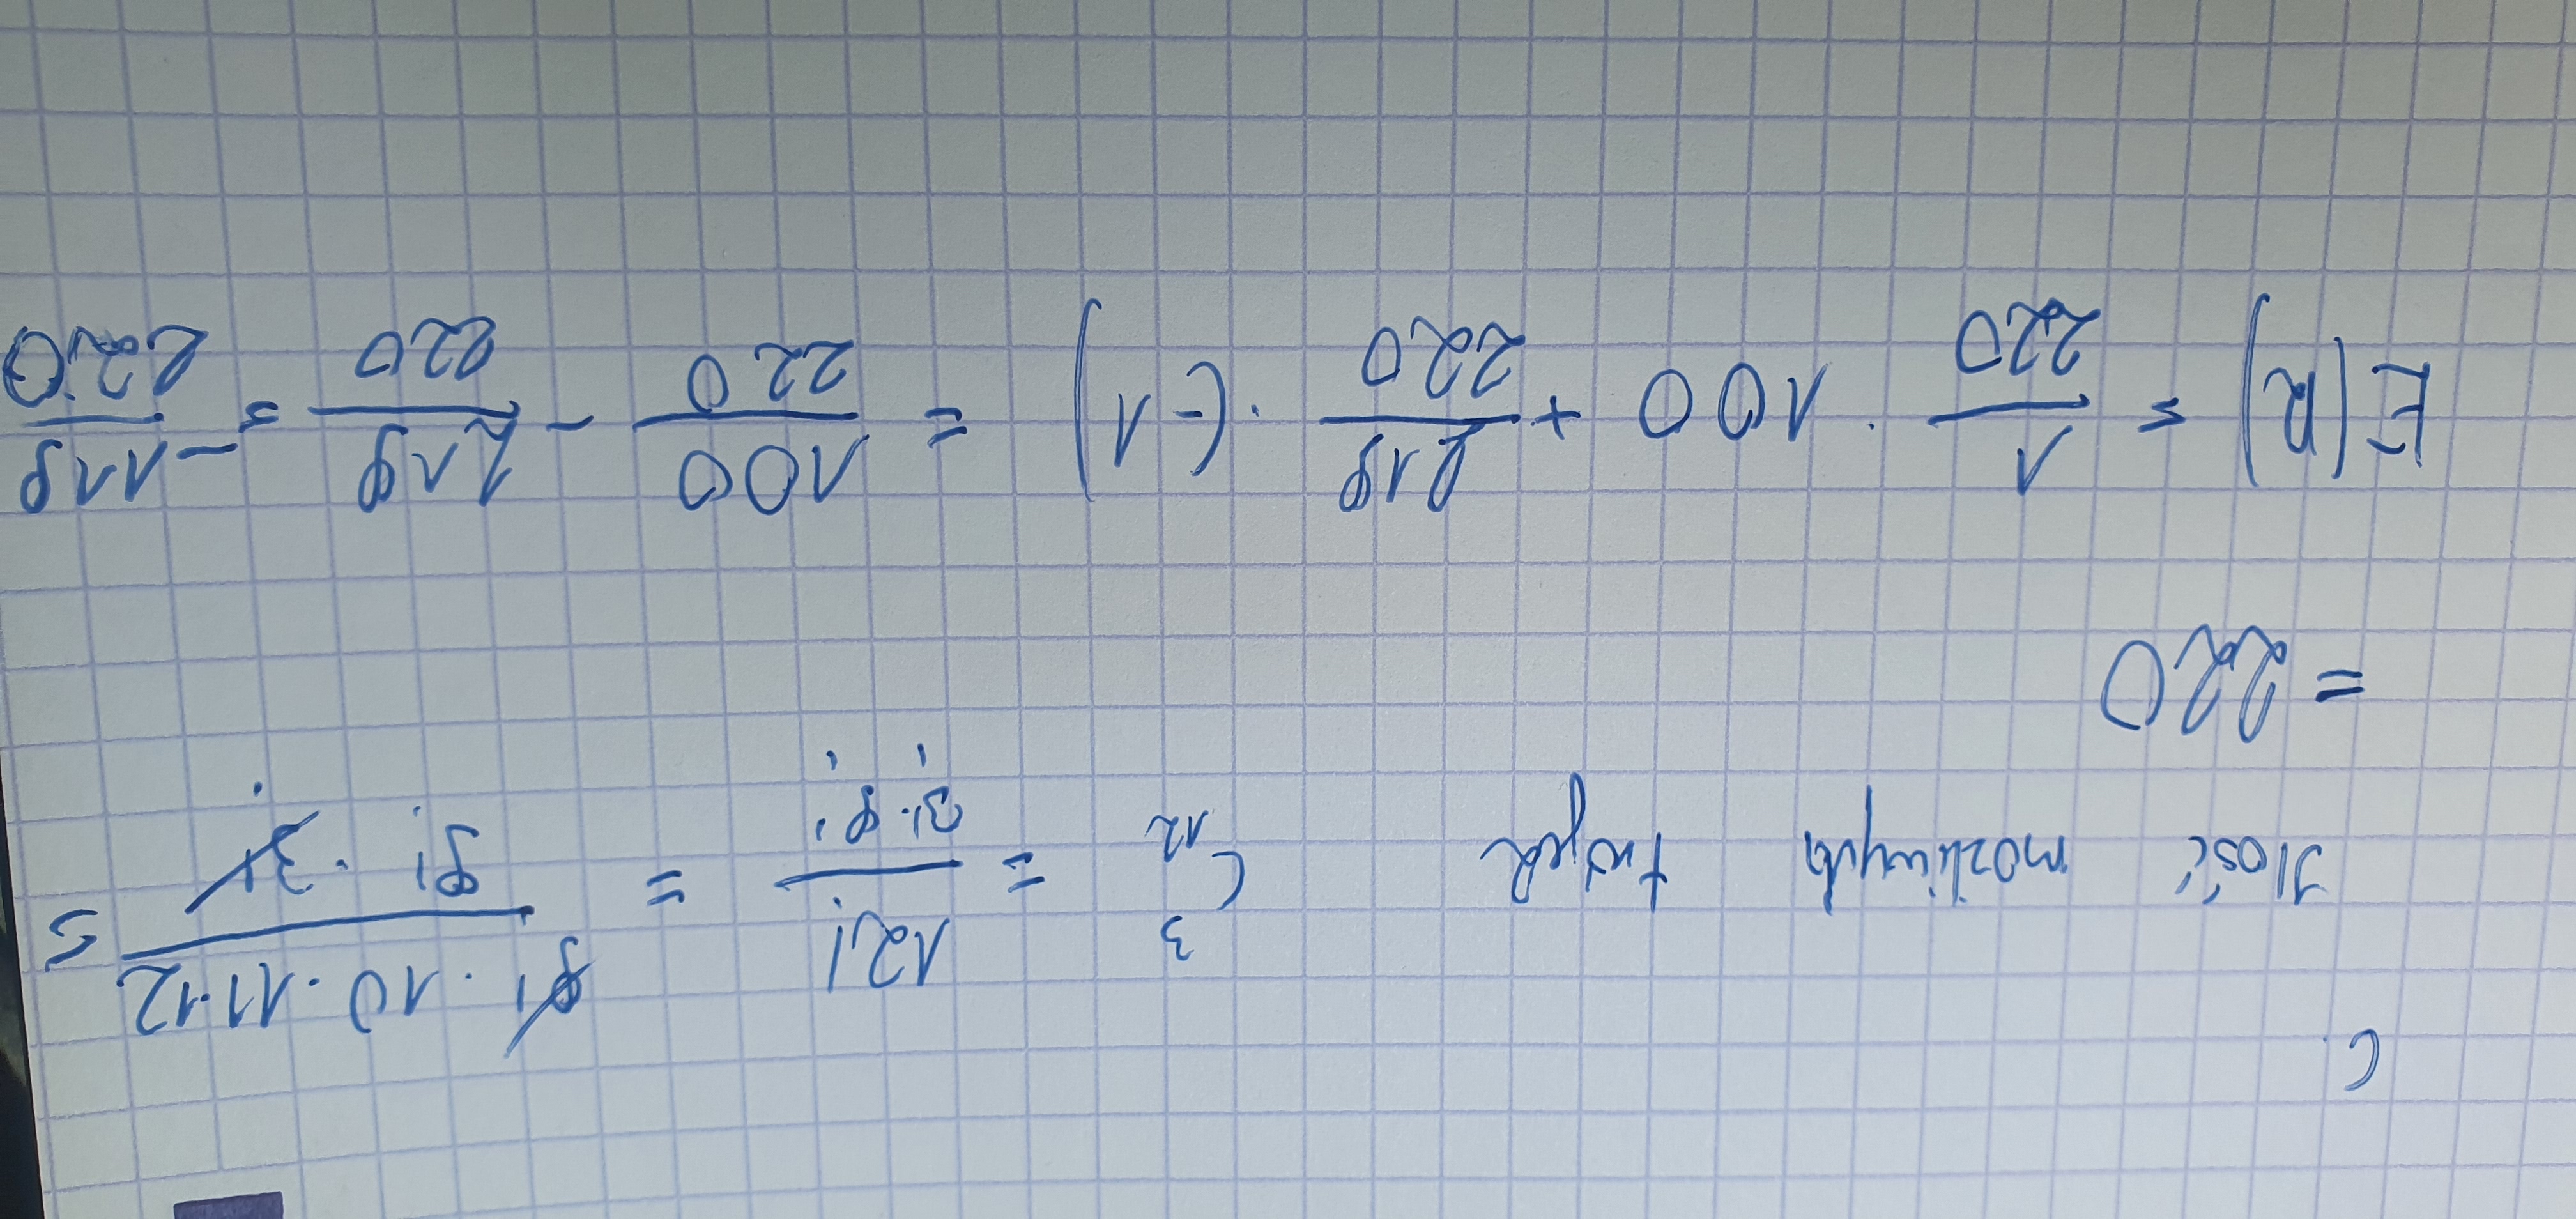 C.
Ilość możliwych trójek C₁₂³ = 12!/(3!·9!) = (9!·10·11·12)/(9!·3!) =
= 220
E(R) = 1/220 · 100 + 219/220 · (-1) = 100/220 - 219/220 = -119/220